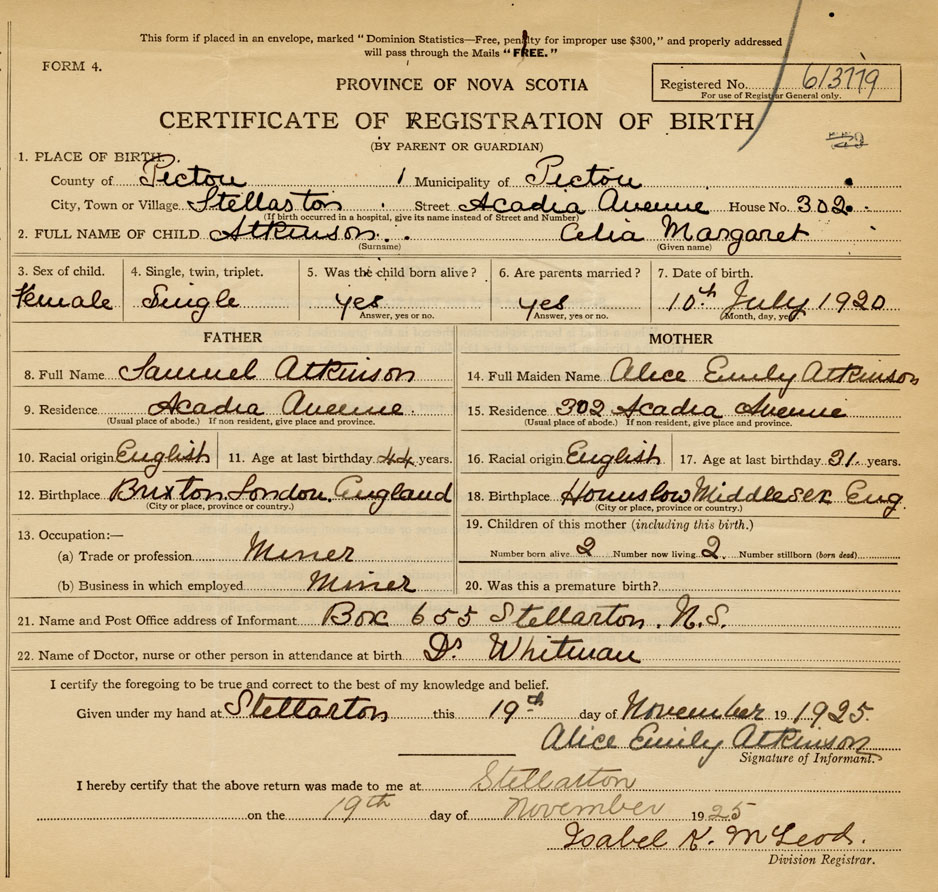 This form if placed in an envelope, marked "Dominion Statistics—Free, penalty for improper use $300," and properly addressed
will pass through the Mails "FREE."
FORM 4.
PROVINCE OF NOVA SCOTIA
Registered No. 613779
For use of Registrar General only.
CERTIFICATE OF REGISTRATION OF BIRTH
(BY PARENT OR GUARDIAN)
1. PLACE OF BIRTH:
County of Pictou Municipality of Pictou
City, Town or Village Stellarton Street Acadia Avenue House No. 302
(If birth occurred in a hospital, give its name instead of Street and Number)
2. FULL NAME OF CHILD Atkinson Celia Margaret
(Surname) (Given name)
3. Sex of child. 4. Single, twin, triplet. 5. Was the child born alive? 6. Are parents married? 7. Date of birth.
Female Single yes yes 10th July 1920
Answer, yes or no. Answer, yes or no. (Month, day, year)
FATHER MOTHER
8. Full Name Samuel Atkinson 14. Full Maiden Name Alice Emily Atkinson
9. Residence Acadia Avenue 15. Residence 302 Acadia Avenue
(Usual place of abode.) If non-resident, give place and province. (Usual place of abode.) If non-resident, give place and province.
10. Racial origin English 11. Age at last birthday 44 years. 16. Racial origin English 17. Age at last birthday 31 years.
12. Birthplace Brixton. London. England 18. Birthplace Hounslow Middlesex Eng.
(City or place, province or country.) (City or place, province or country.)
13. Occupation:— 19. Children of this mother (including this birth.)
(a) Trade or profession Miner Number born alive 2 Number now living 2. Number stillborn (born dead)
(b) Business in which employed Miner 20. Was this a premature birth?
21. Name and Post Office address of Informant Box 655 Stellarton. N.S.
22. Name of Doctor, nurse or other person in attendance at birth Dr Whitman
I certify the foregoing to be true and correct to the best of my knowledge and belief.
Given under my hand at Stellarton this 19th day of November 19 1925.
Alice Emily Atkinson
Signature of Informant.
I hereby certify that the above return was made to me at Stellarton
on the 19th day of November 1925
Isabel K. McLeod.
Division Registrar.